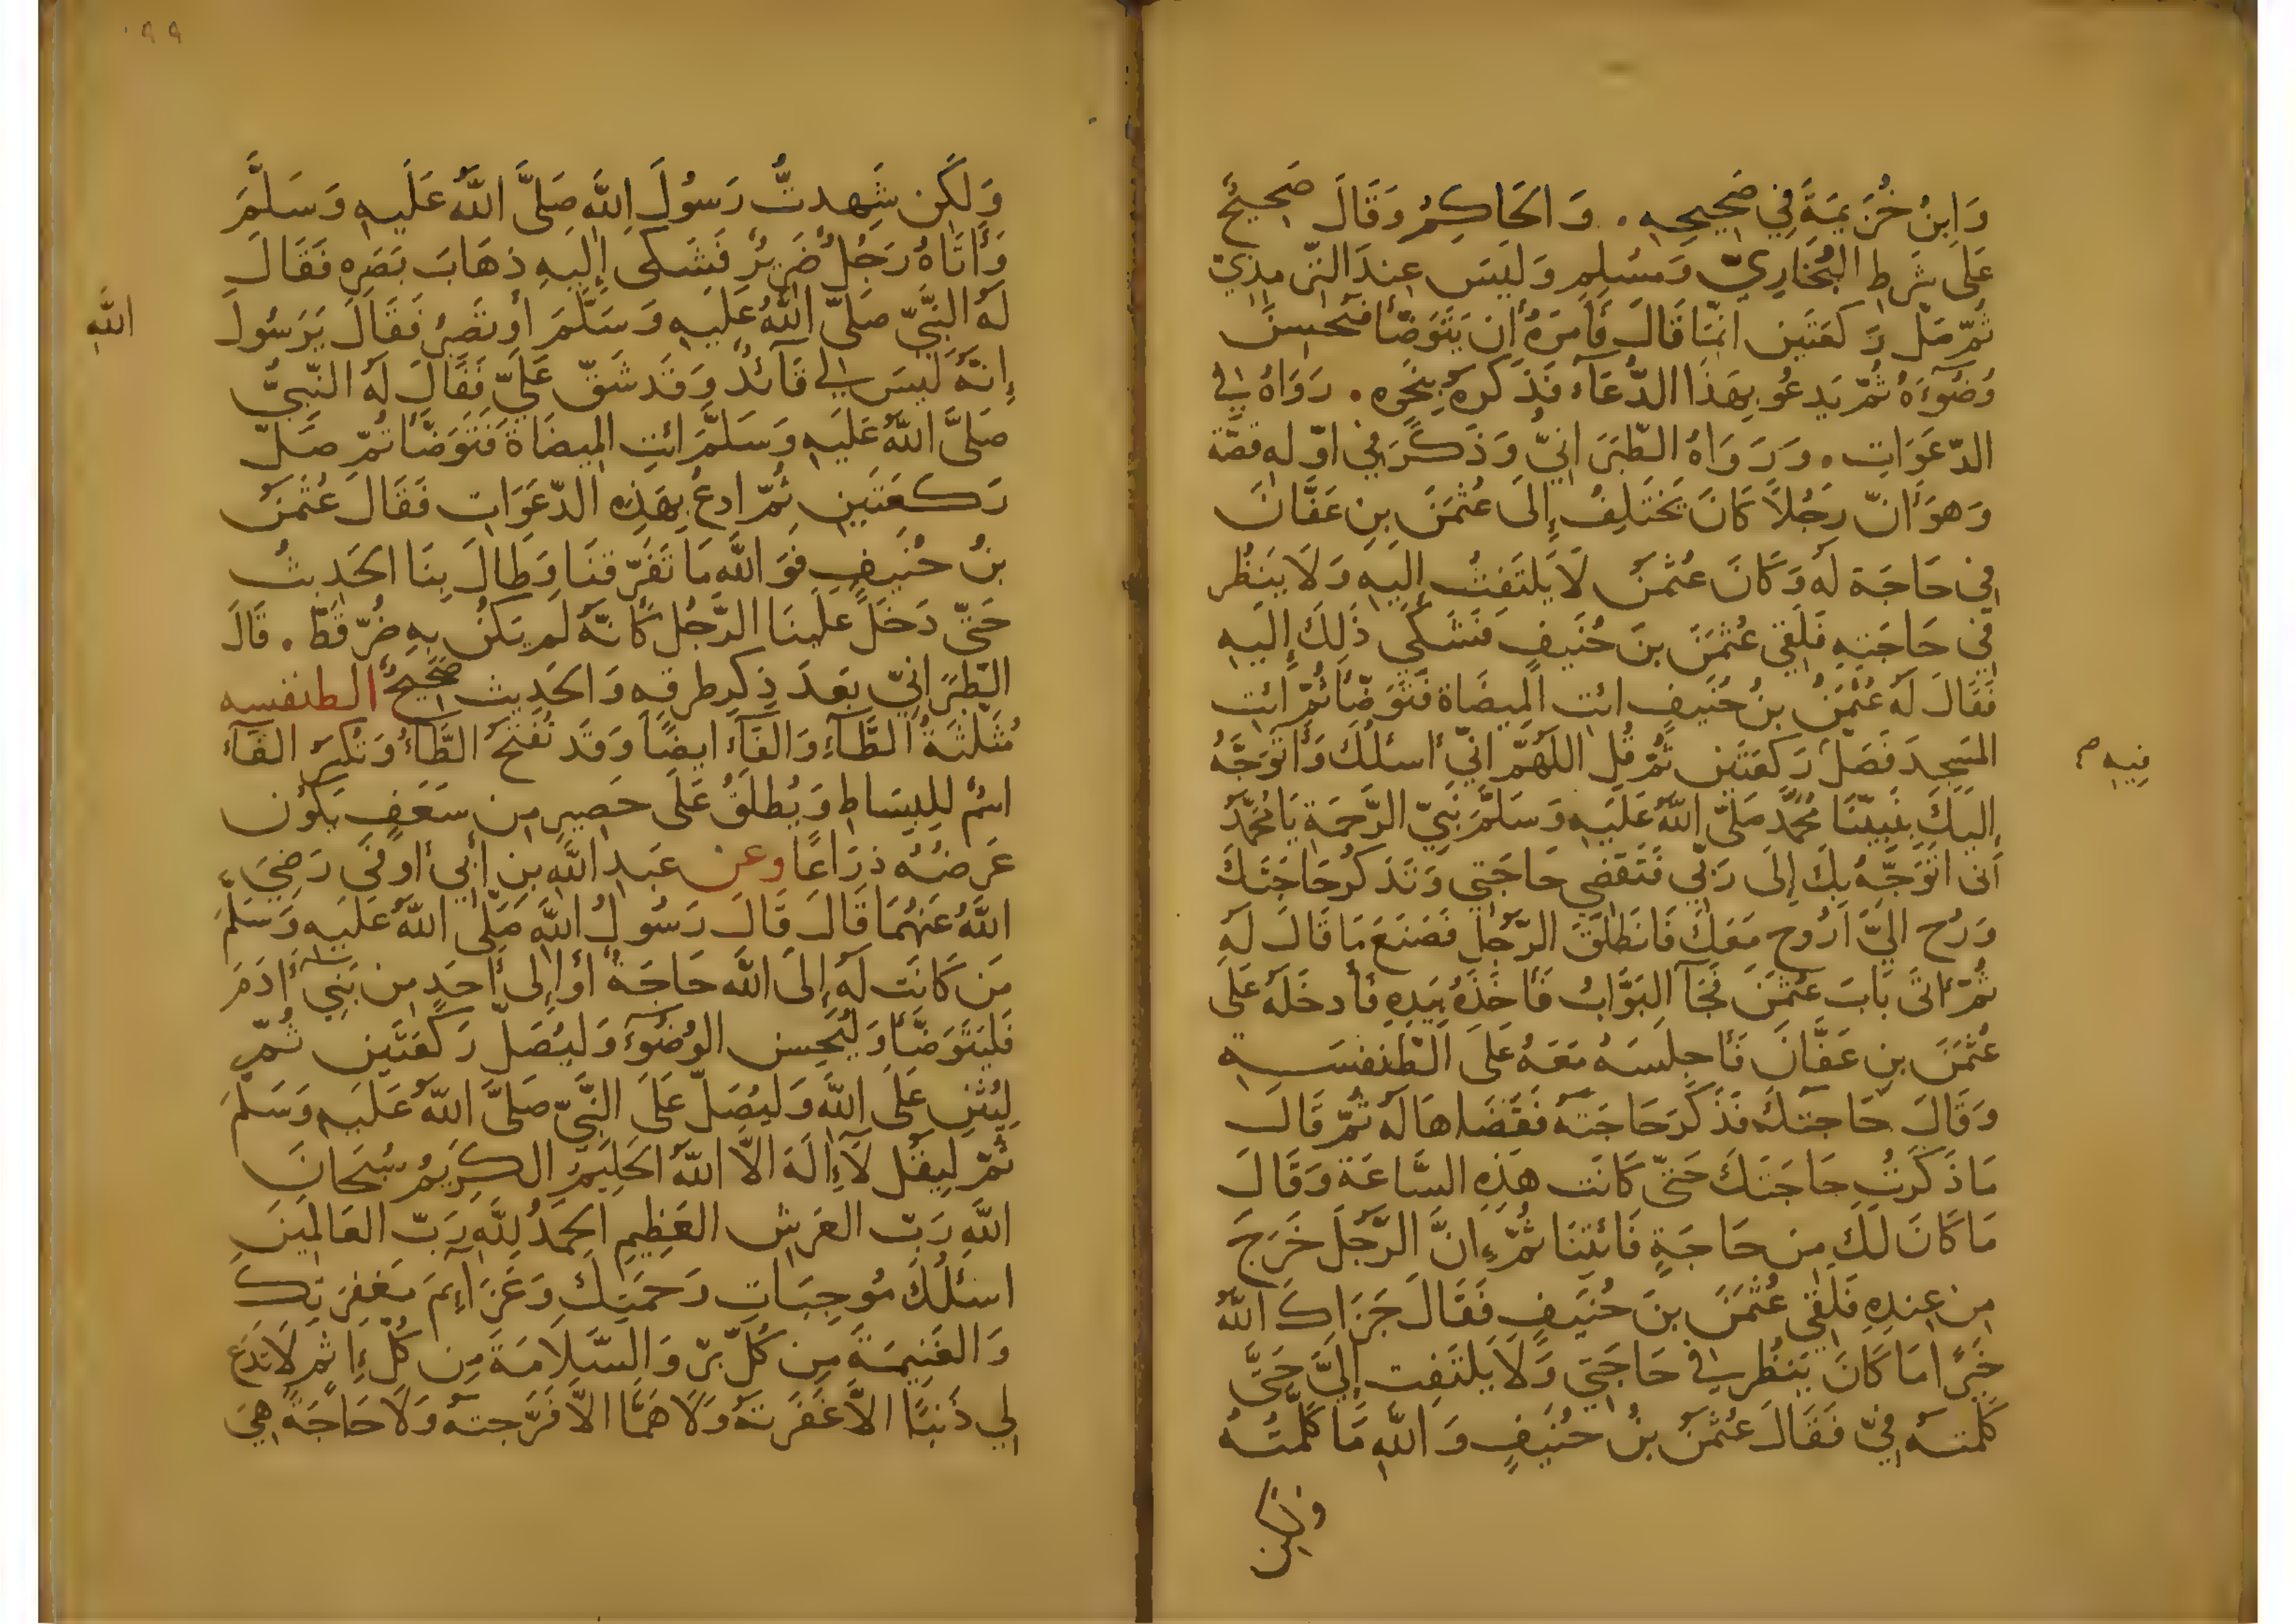 وَابنُ خُزَيمَةَ فِي صَحِيحِهِ . وَالحَاكِمُ وَقَالَ صَحِيحٌ
عَلَى شَرطِ البُخَارِيِّ وَمسُلِمِ وَلَيسَ عِندَ التِّرمِذِيّ
ثُمّ صَلّ رَكعَتَينِ انّمَا قَالَ فَأمَرَهُ أن يَتَوَضّأ فَيُحسِنَ
وُضُوءَهُ ثُمّ يَدعُو بِهَذَا الدُّعَآءِ فَذَكَرهُ بِنَحوِهِ . رَوَاهُ فِي
الدّعَوَاتِ . وَرَوَاهُ الطّبَرَانِيّ وَذَكَرَ فِي اوّلِهِ قصّة
وَهوَ أنّ رَجُلاً كَانَ يَختَلِفُ إِلَى عُثمَنَ بنِ عَفَّانَ
فِي حَاجَة لَهُ وَكَانَ عُثمَنُ لَا يَلتَفِتُ إِلَيهِ وَلَا يَنظُر
فِي حَاجَتِهِ فَلَقِي عُثمَنَ بنَ حُنَيفٍ فَشَكَي ذَلِكَ إِلَيهِ
فَقَالَ لَهُ عُثمَنُ بنُ حُنَيفٍ ائت المِيضَاة فَتَوَضّأ ثُمّ ائت
المَسجِدَ فَصَلّ رَكعَتَينِ ثُمّ قُلِ اللّهُمّ انّي أسئلُكَ وَأتَوَجّهُ
إِلَيكَ بِنَبِيّنَا مُحَمَّد صَلّى اللّهُ عَلَيهِ وَسَلَّمَ نَبِيّ الرَّحمَةِ يَا مُحَمَّدُ
أنى اتَوَجّهُ بِكَ إِلَى رَبّي فَتَقضِي حَاجَتِي وَتَذكُر حَاجَتَكَ
وَرُح إِليَّ أَرُوح مَعَكَ فَانطَلَقَ الرّجُل فَصَنَعَ مَا قَالَ لَهُ
ثُمّ اتَى بَابَ عُثمَنَ فَجَآ البَوَّابُ فَأخَذَهُ بِيَدِهِ فأدخَلَهُ عَلَى
عُثمَنَ بنِ عَفَّانَ فَأجلَسَهُ مَعَهُ عَلَى الطّنفسَةِ
وَقَالَ حَاجَتَكَ فَذَكَرَ حَاجَتَهُ فَقَضَاهَا لَهُ ثُمّ قَالَ
مَا ذَكَرتُ حَاجَتَكَ حَتّى كَانَت هَذِهِ السَّاعَة وَقَالَ
مَا كَانَ لَكَ مِن حَاجَةٍ فَائتِنَا ثُمّ إِنَّ الرَّجُلَ خَرَجَ
مِن عِندِهِ فَلَقِي عُثمَنَ بنَ حُنَيفٍ فَقَالَ جَزَاكَ اللّهُ
خَيرًا مَا كَانَ يَنظُر فِي حَاجَتِي وَلَا يَلتَفِت إِلَيَّ حَتَّى
كَلّمتَهُ فِيّ فَقَالَ عُثمَنُ بنُ حُنَيفٍ وَاللّهِ مَا كَلَّمتُهُ
ولكن
فِيهِ م
٩٩
وَلَكِن شَهِدتُّ رَسُولَ اللَّهِ صَلَّى اللّهُ عَلَيهِ وَسَلَّمَ
وَأتَاهُ رَجُلٌ ضَرِيرٌ فَشَكَى إِلَيهِ ذهَابَ بَصَرِهِ فَقَالَ
لَهُ النَّبِيّ صَلَّى اللّهُ عَلَيهِ وَسَلَّمَ أو تَصبِرُ فَقَالَ يَرَسُولَ
اللَّهِ
إِنّهُ لَيسَ لِي قَائدٌ وَقَد شَقّ عَلَيَّ فَقَالَ لَهُ النّبِيُّ
صَلَّى اللّهُ عَلَيهِ وَسَلَّمَ ائتِ المِيضَاةَ فَتَوَضَّأ ثُمّ صَلّ
رَكعَتَينِ ثُمّ ادعُ بِهَذِهِ الدّعَوَاتِ فَقَالَ عُثمَنُ
بنُ حُنَيفٍ فَوَ اللّهِ مَا تَفَرّقنَا وَطَالَ بِنَا الحَدِيثُ
حَتّى دَخَلَ عَلَينَا الرَّجُل كَأنّهُ لَم يَكُن بِهِ ضُرّ قَطّ . قَالَ
الطّبَرَانِيّ بَعدَ ذِكرِ طرقِهِ وَالحَدِيث صَحِيحٌ الطنفسه
مُثَلثَةُ الطَّآءِ وَالفَآءِ ايضًا وَقَد تُفتَحُ الطَّآءُ وَتُكسَرُ الفَآءُ
اسمٌ لِلبِسَاطِ وَيُطلَقُ عَلَى حَصِيرٍ مِن سَعَفٍ يَكُون
عَرضُهُ ذرَاعًا وعن عَبدِ اللّهِ بنِ أبِي أوفَى رَضِيَ
اللّهُ عَنهُمَا قَالَ قَالَ رَسُولُ اللّهِ صَلَّى اللّهُ عَلَيهِ وَسَلَّمَ
مَن كَانَت لَهُ إِلَى اللّهِ حَاجَةٌ أو إِلى أَحَدٍ مِن بَنِي أَدَمَ
فَليَتَوَضَّأ وَليُحسِن الوُضُوءَ وَليُصَلّ رَكعَتَينِ ثُمّ
لِيُثنِ عَلَى اللّهِ وَليُصَلّ عَلَى النَّبِيّ صَلَّى اللّهُ عَلَيهِ وَسَلَّمَ
ثُمّ لِيقُل لَآ إِلَهَ الاّ اللّهُ الحَلِيمُ الكَرِيمُ سُبحَانَ
اللّهِ رَبّ العَرشِ العَظِيمِ الحَمدُ لِلّهِ رَبّ العَالمِينَ
اسئَلُكَ مُوجِبَاتِ رَحمَتِكَ وَعَزَآئِمَ مَغفِرَتِكَ
وَالغَنِيمَةَ مِن كُلّ برّ وَالسَّلَامَةَ مِن كُلّ إِثمٍ لَا تَدَع
لِي ذَنبًا الاَّ غَفَرتَهُ وَلَا هَمًّا الاَّ فَرَّجتَهُ وَلَا حَاجَةً هِيَ